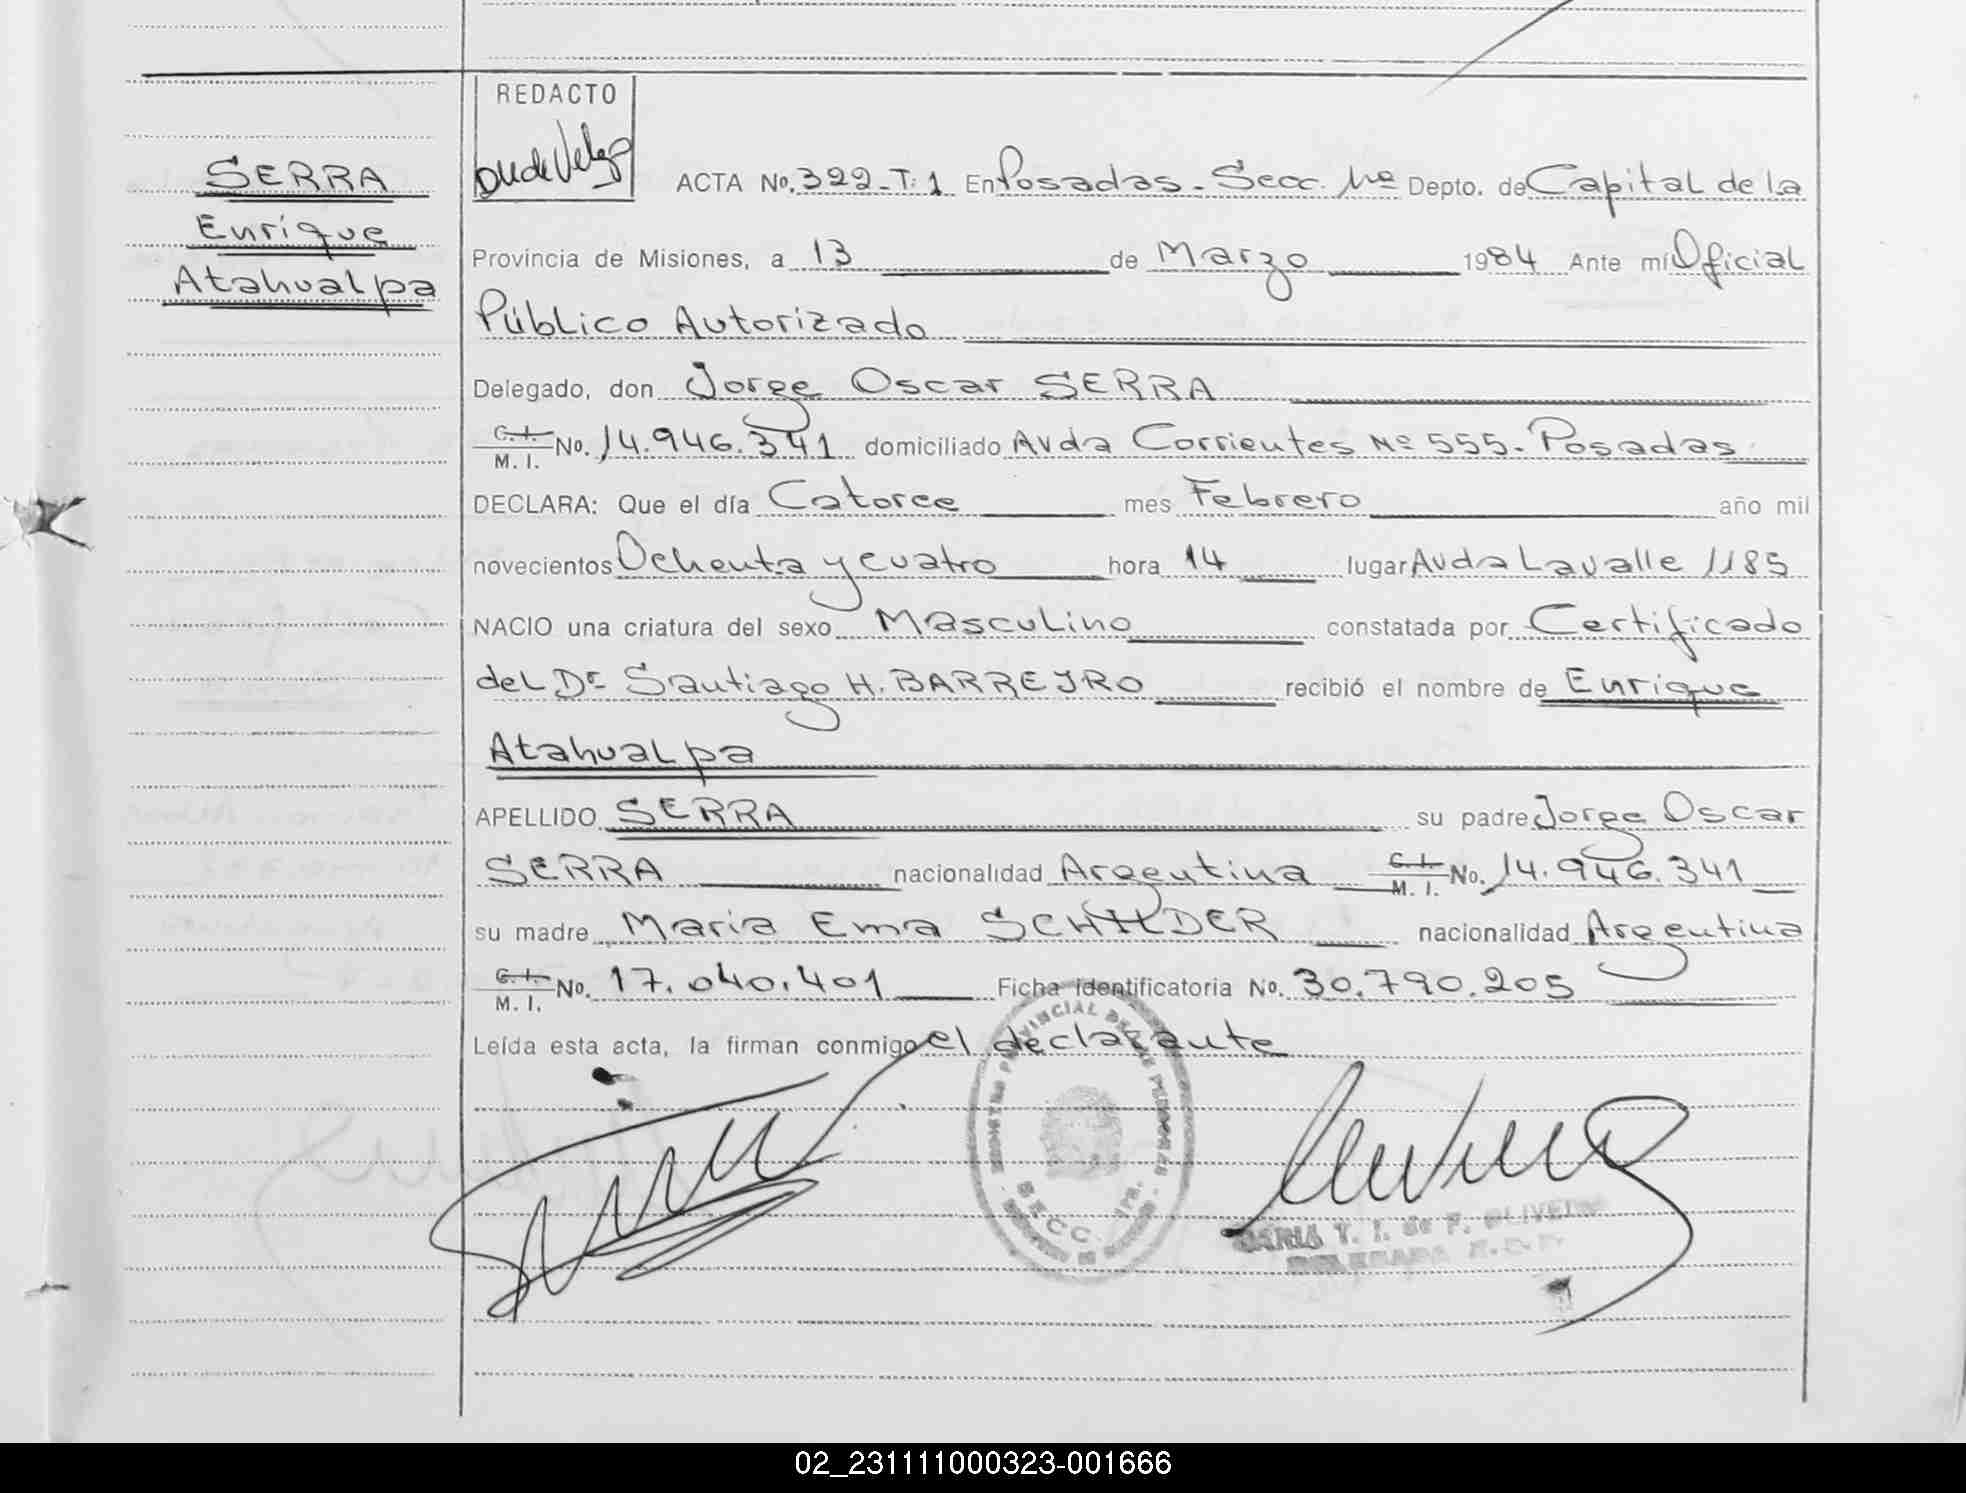 REDACTO
SERRA
Enrique
Atahualpa
ACTA No. 322-T:1 En Posadas - Secc. 1ra Depto. de Capital de la
Provincia de Misiones, a 13 de Marzo 1984 Ante mí Oficial
Público Autorizado
Delegado, don Jorge Oscar SERRA
C.I. M.I. No. 14.946.341 domiciliado Avda Corrientes Nº 555- Posadas
DECLARA: Que el día Catorce mes Febrero año mil
novecientos Ochenta y cuatro hora 14 lugar Avda Lavalle 1185
NACIO una criatura del sexo Masculino constatada por Certificado
del Dr Santiago H. BARREYRO recibió el nombre de Enrique
Atahualpa
APELLIDO SERRA su padre Jorge Oscar
SERRA nacionalidad Argentina C.I. M.I. No. 14.946.341
su madre Maria Ema SCHILDER nacionalidad Argentina
C.I. M.I. No. 17.040.401 Ficha identificatoria No. 30.790.205
Leída esta acta, la firman conmigo el declarante
REGISTRO PROVINCIAL DE LAS PERSONAS
SECC. 1ra.
MARIA T. I. de P. OLIVEIRA
DELEGADA R.D.P.
02_231111000323-001666